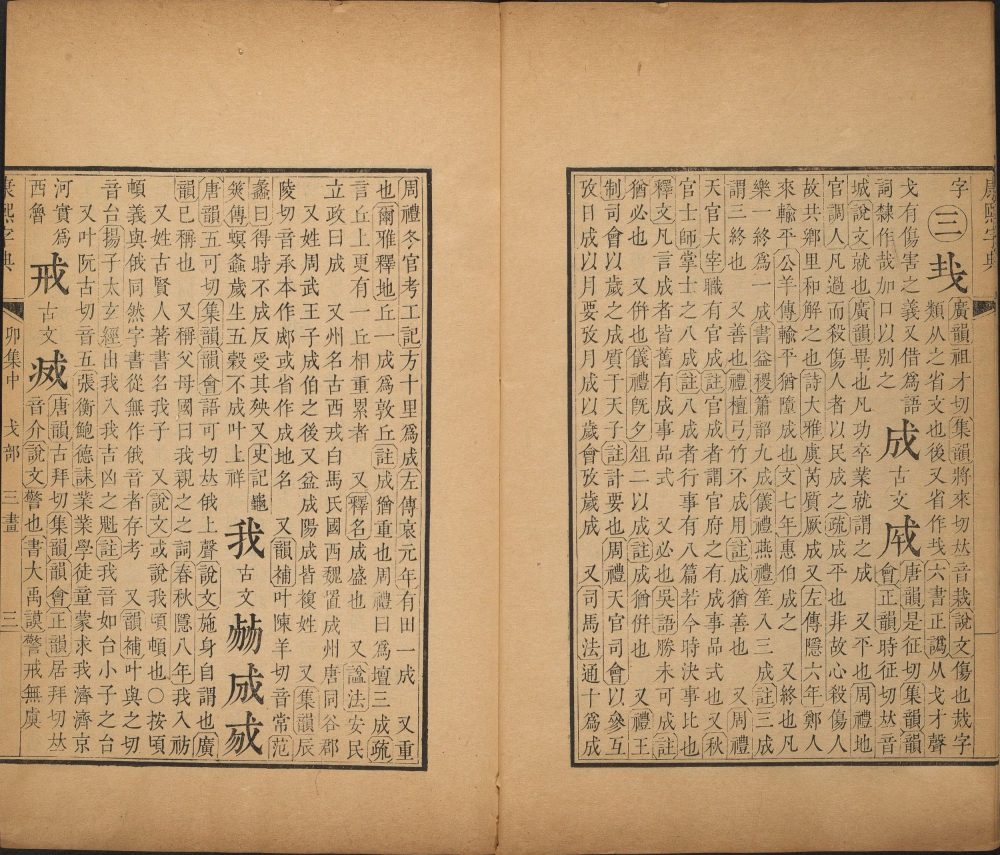 康熙字典
字 三 𢦏 廣韻祖才切集韻將來切𠀤音栽說文傷也烖字
類从之省文也後又省作𢦏六書正譌从戈才聲
戈有傷害之義又借爲語
詞隸作哉加口以別之 成 古文 𢦩 唐韻是征切集韻韻
會正韻時征切𠀤音
城說文就也廣韻畢也凡功卒業就謂之成 又平也周禮地
官調人凡過而殺傷人者以民成之疏成平也非故心殺傷人
故共鄉里和解之也詩大雅虞芮質厥成又左傳隱六年鄭人
來輸平公羊傳輸平猶隳成也文七年惠伯成之 又終也凡
樂一終爲一成書益稷簫韶九成儀禮燕禮笙入三成註三成
謂三終也 又善也禮檀弓竹不成用註成猶善也 又周禮
天官大宰職有官成註官成者謂官府之有成事品式也又秋
官士師掌士之八成註八成者行事有八篇若今時決事比也
釋文凡言成者皆舊有成事品式 又必也吳語勝未可成註
猶必也 又倂也儀禮旣夕俎二以成註成猶倂也 又禮王
制司會以歲之成質于天子註計要也周禮天官司會以參互
攷日成以月要攷月成以歲會攷歲成 又司馬法通十爲成
周禮冬官考工記方十里爲成左傳哀元年有田一成 又重
也爾雅釋地丘一成爲敦丘註成猶重也周禮曰爲壇三成疏
言丘上更有一丘相重累者 又釋名成盛也 又諡法安民
立政曰成 又州名古西戎白馬氏國西魏置成州唐同谷郡
又姓周武王子成伯之後又盆成陽成皆複姓 又集韻辰
陵切音承本作郕或省作成地名 又韻補叶陳羊切音常范
蠡曰得時不成反受其殃又史記龜
筴傳螟螽歲生五穀不成叶上祥 我 古文 𢦠 𢦐 𢦓
唐韻五可切集韻韻會語可切𠀤俄上聲說文施身自謂也廣
韻己稱也 又稱父母國曰我親之之詞春秋隱八年我入祊
又姓古賢人著書名我子 又說文或說我頃頓也○按頃
頓義與俄同然字書從無作俄音者存考 又韻補叶與之切
音台揚子太玄經出我入我吉凶之魁註我音如台小子之台
又叶阮古切音五張衡鮑德誄業業學徒童蒙求我濟濟京
河實爲
西魯 戒 古文 𢌵 唐韻古拜切集韻韻會正韻居拜切𠀤
音介說文警也書大禹謨警戒無虞
康熙字典 卯集中 戈部 三畫 三